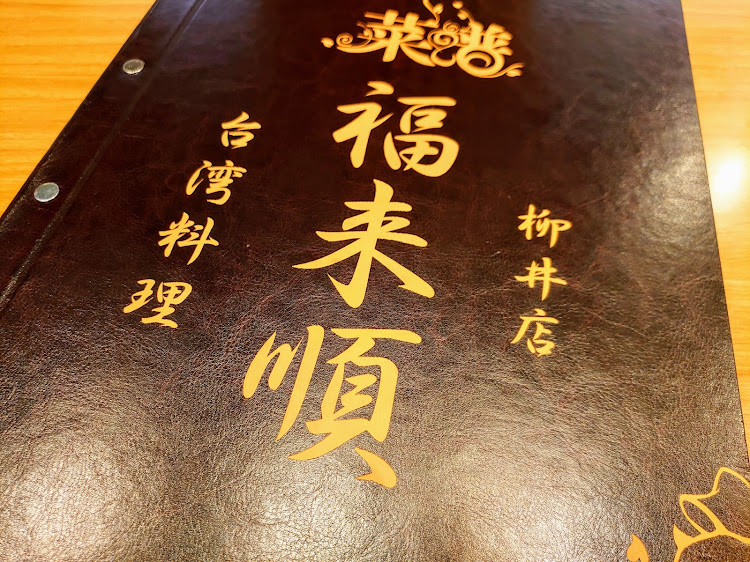 菜譜
柳井店
福来順
台湾料理